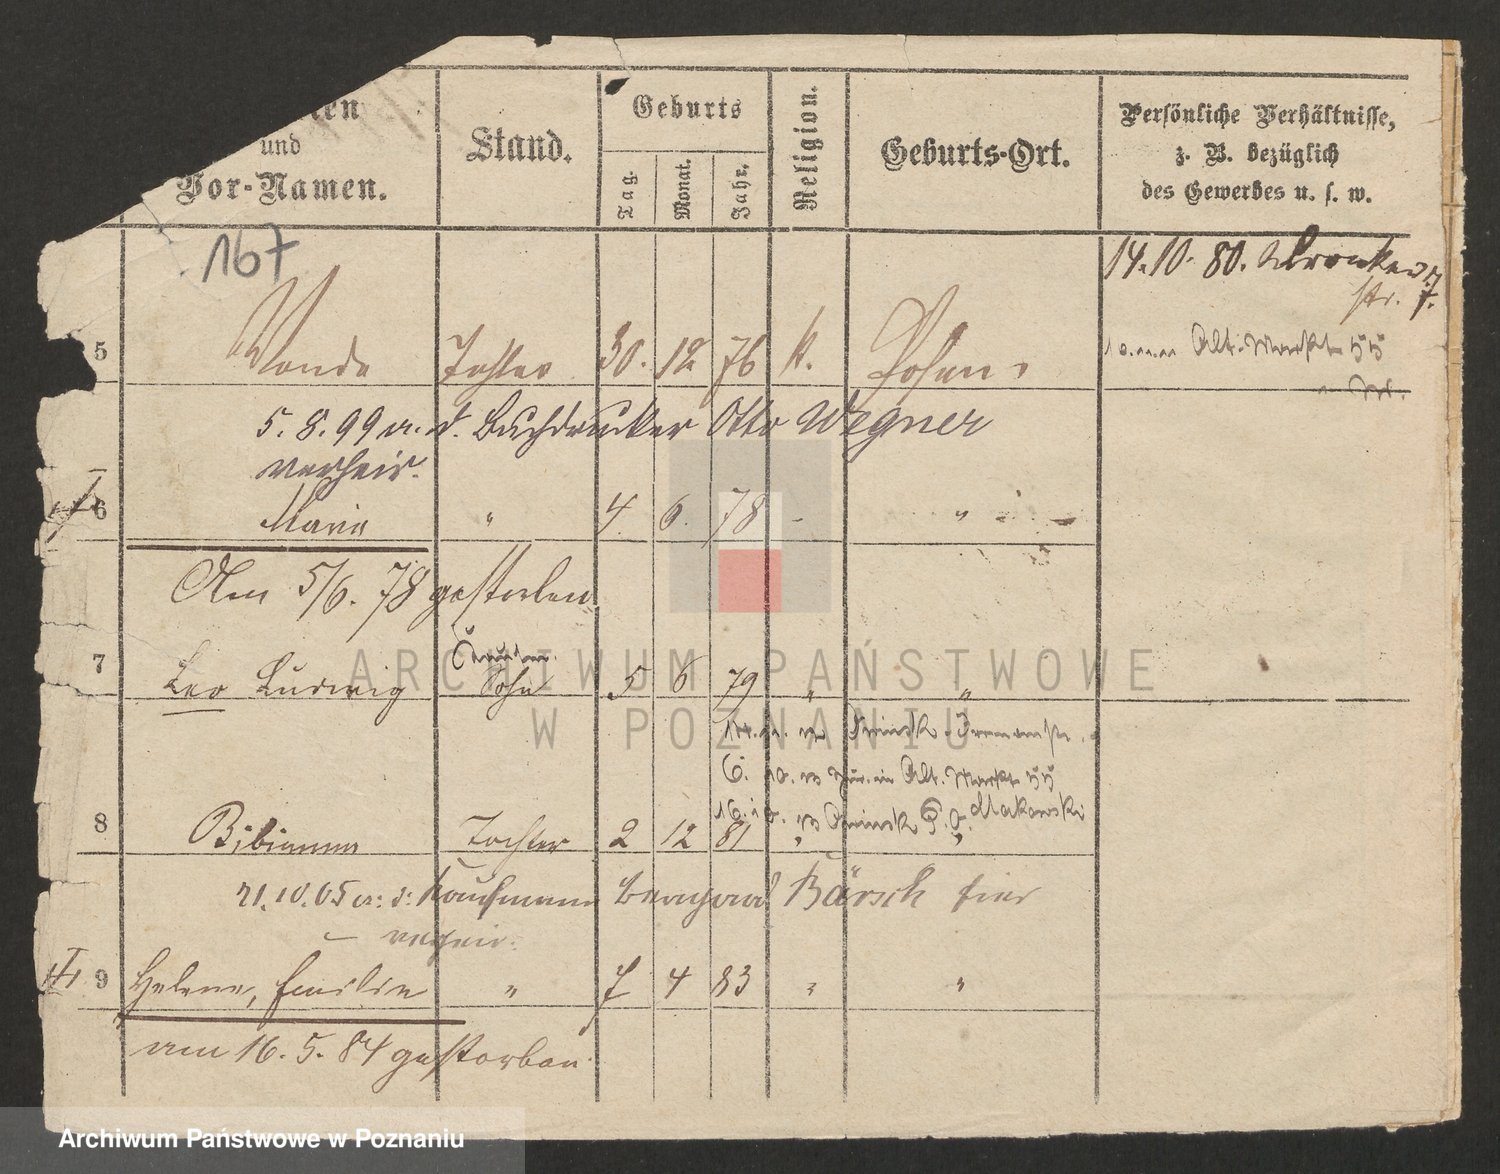 und
Vor-Namen.
Stand.
Geburts
Tag.
Monat.
Jahr.
Religion.
Geburts-Ort.
Persönliche Verhältnisse,
z. B. bezüglich
des Gewerbes u. s. w.
167
14.10.80. Wronker
str. 7.
5 Wanda Tochter 30. 12 76 k. Posen
Alt. Markt 55
5. 8. 99 m. d. Buchdrucker Otto Wegner
verheir.
6 Maria " 4. 6. 78 - "
Am 5/6. 78 gestorben
7 Leo Ludwig Sohn 5 6 79 " "
14.
6. 10. Alt. Markt 55
16. Makowski
8 Bibianna Tochter 2 12 81 " "
21.10.05 m. d. Kaufmann Bärsch hier
verheir.
9 Helene, Emilie " 7 4 83 " "
am 16. 5. 84 gestorben
ARCHIWUM PAŃSTWOWE
W POZNANIU
Archiwum Państwowe w Poznaniu